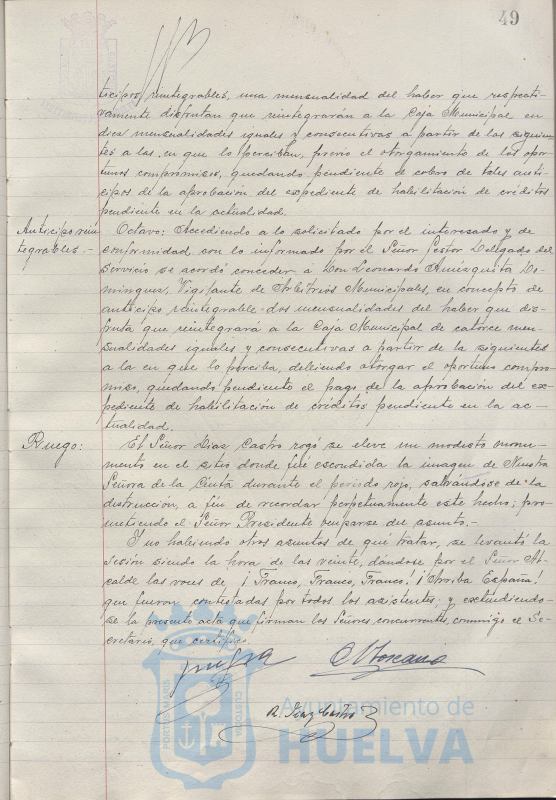 49
ticipos reintegrables, una mensualidad del haber que respecti-
vamente disfrutan que reintegrarán a la Caja Municipal en
diez mensualidades iguales y consecutivas a partir de las siguien-
tes a las en que lo perciban, previo el otorgamiento de los opor-
tunos compromisos, quedando pendiente el cobro de tales anti-
cipos de la aprobación del expediente de habilitación de créditos
pendiente en la actualidad.
Anticipo rein
tegrables.-
Octavo: Accediendo a lo solicitado por el interesado y de
conformidad con lo informado por el Señor Gestor Delegado del
Servicio se acordó conceder a Don Leonardo Do-
minguez, Vigilante de Arbitrios Municipales, en concepto de
anticipo reintegrable dos mensualidades del haber que dis-
fruta que reintegrará a la Caja Municipal de catorce men-
sualidades iguales y consecutivas a partir de la siguientes
a la en que lo perciba, debiendo otorgar el oportuno compro-
miso, quedando pendiente el pago de la aprobación del ex-
pediente de habilitación de créditos pendiente en la ac-
tualidad.
Ruego:
El Señor Diaz Castro rogó se eleve un modesto monu-
mento en el sitio donde fué escondida la imagen de Nuestra
Señora de la Cinta durante el periodo rojo, salvándose de la
destrucción, a fin de recordar perpetuamente este hecho; pro-
metiendo el Señor Presidente ocuparse del asunto.-
Y no habiendo otros asuntos de qué tratar, se levantó la
sesión siendo la hora de las veinte, dándose por el Señor Al-
calde las voces de, ¡Franco, Franco, Franco! ¡Arriba España!
que fueron contestadas por todos los asistentes y extendiendo-
se la presente acta que firman los Señores concurrentes, conmigo el Se-
cretario, que certifico.
R. Diaz Castro
Ayuntamiento de
HUELVA